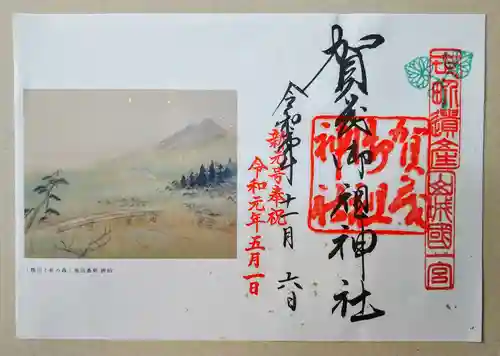 世界遺産山城國一宮
賀茂御祖神社
賀茂
御祖
神社
令和元年十一月六日
新元号奉祝
令和元年五月一日